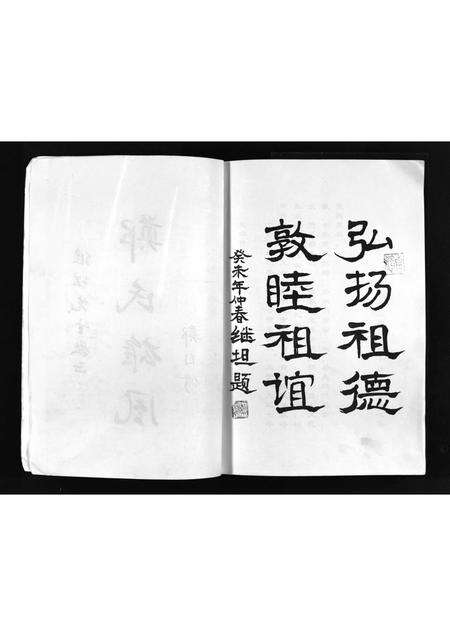 弘扬祖德
敦睦祖谊
癸未年仲春继坦题
郑氏雄风